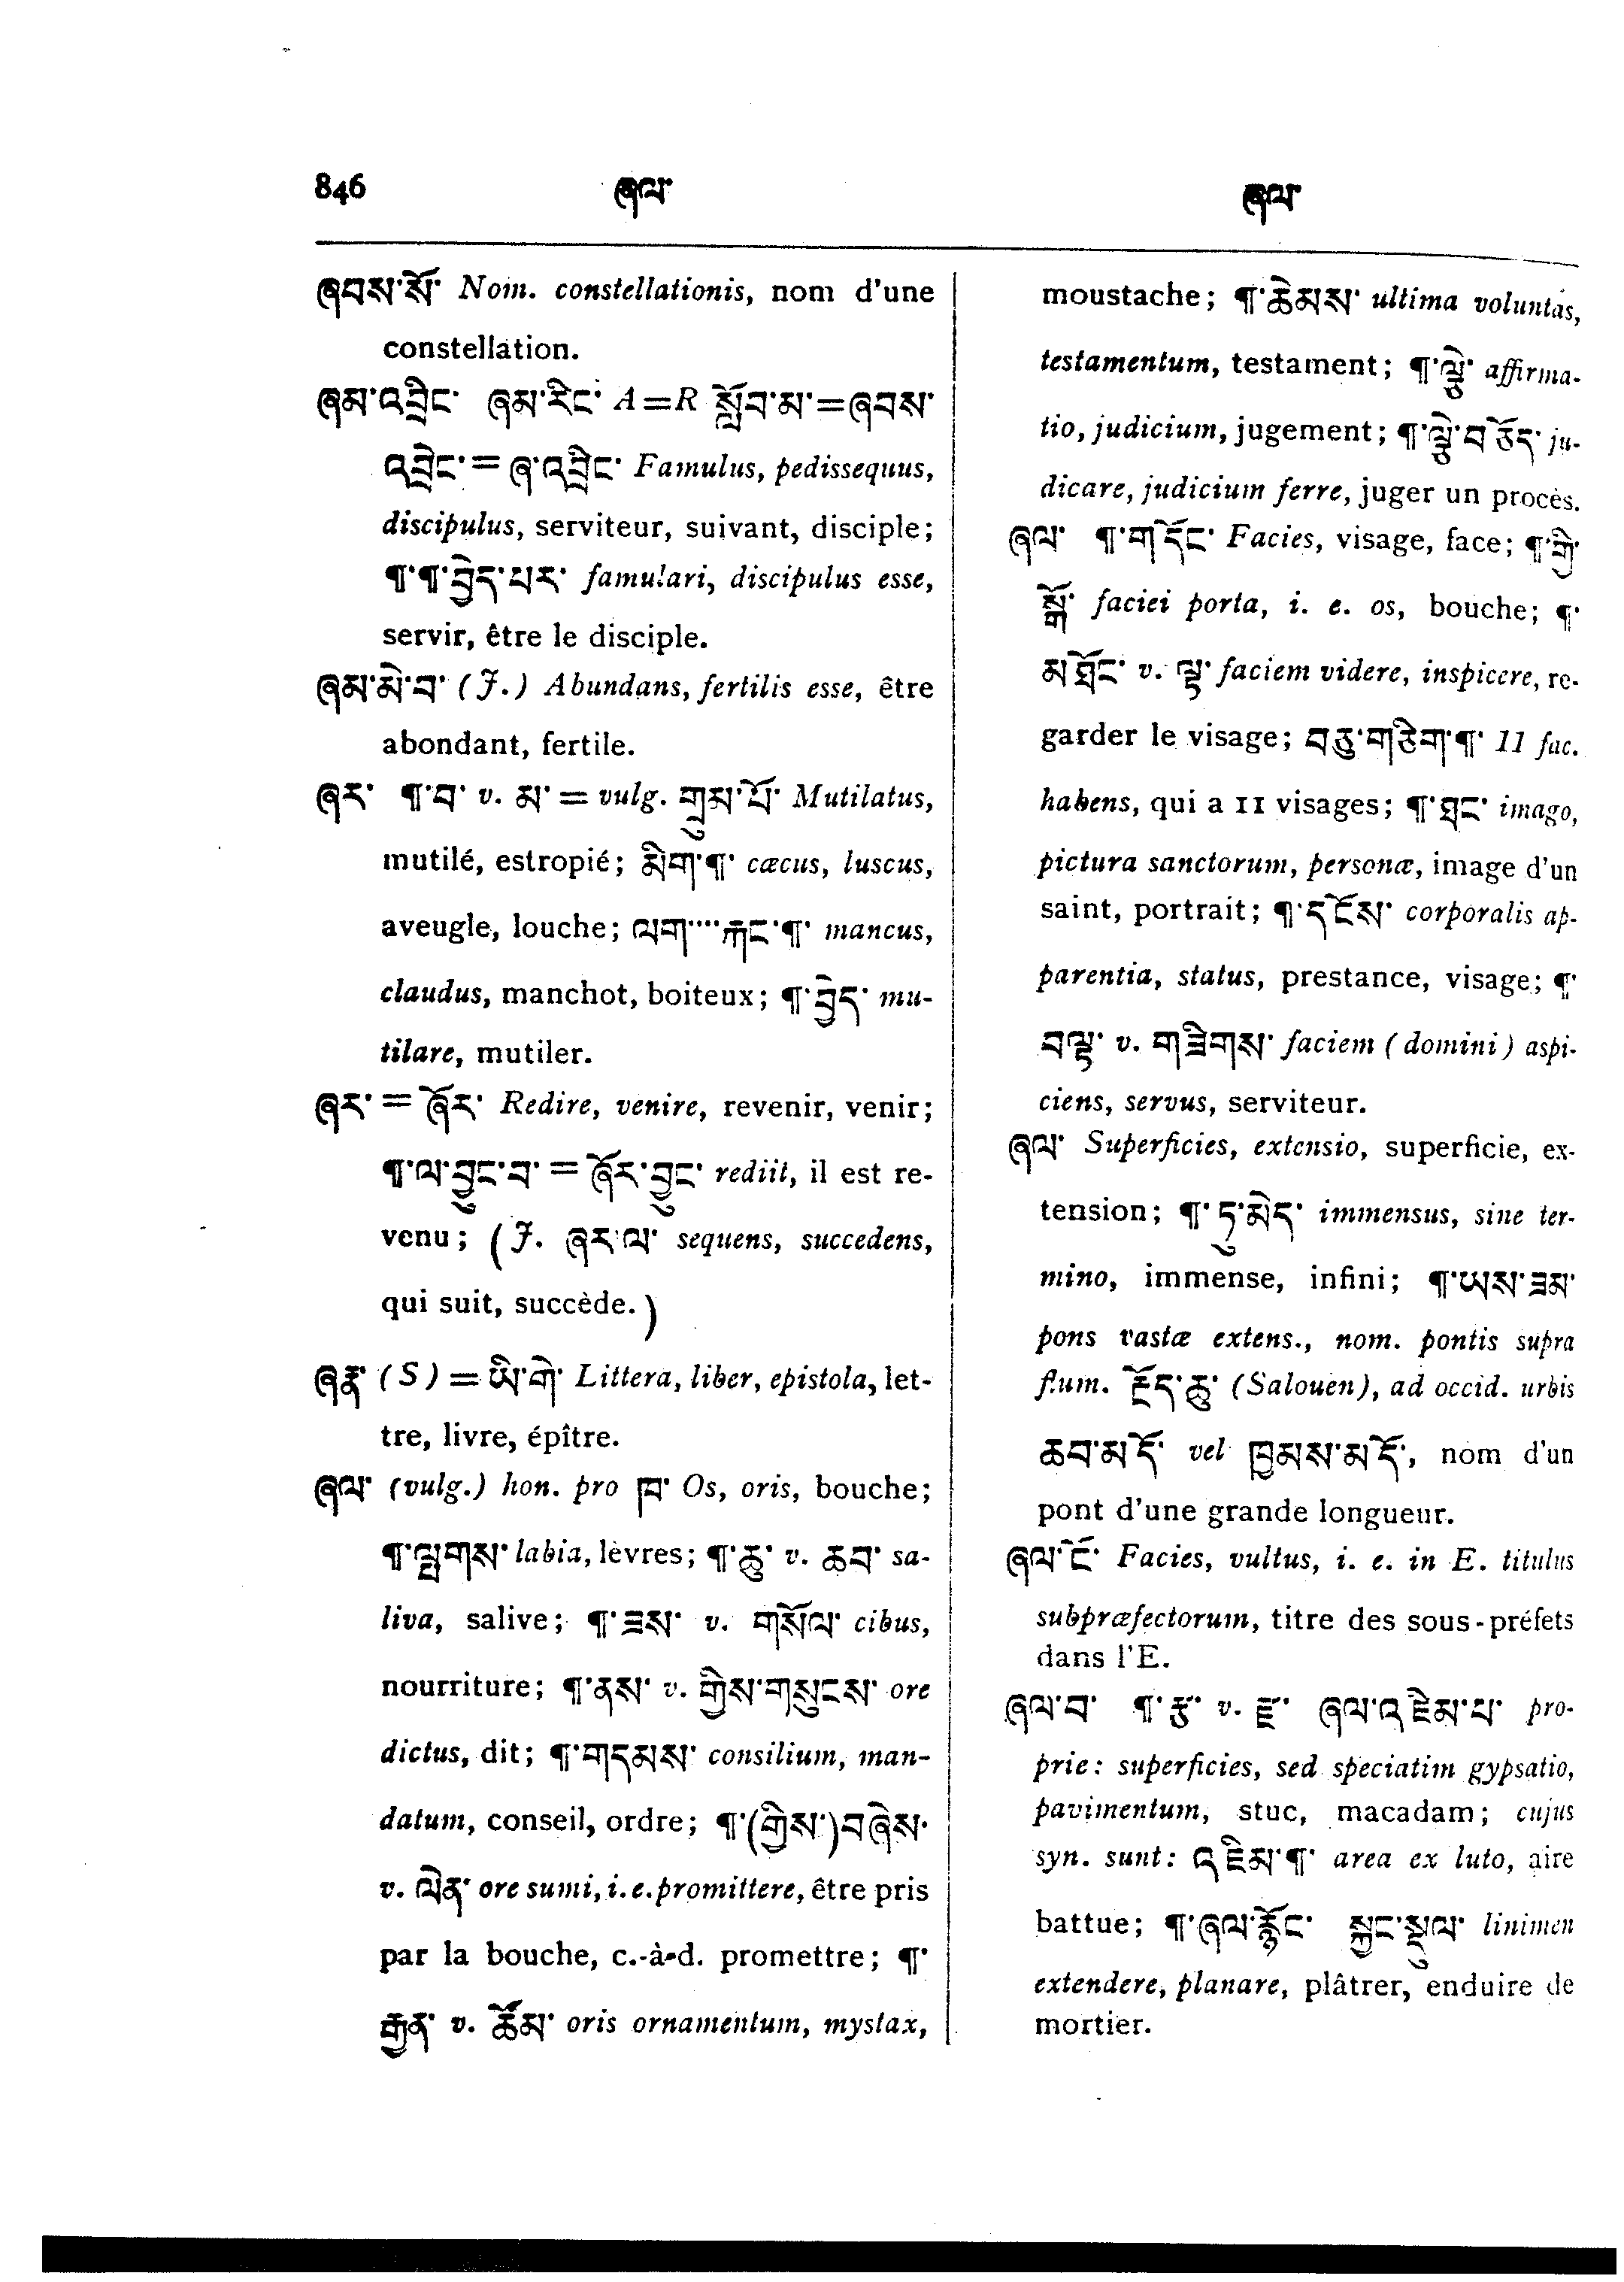 846 ཞལ་ ཞལ་
ཞབས་སོ་ Nom. constellationis, nom d'une
constellation.
ཞམ་འབྲིང་ ཞམ་རིང་ A = R སློབ་མ་ = ཞབས་
འབྲིང་ = ཞ་འབྲིང་ Famulus, pedissequus,
discipulus, serviteur, suivant, disciple;
¶་¶་བྱེད་པར་ famulari, discipulus esse,
servir, être le disciple.
ཞམ་མེ་བ་ (J.) Abundans, fertilis esse, être
abondant, fertile.
ཞར་ ¶་བ་ v. མ་ = vulg. གྲུམ་པོ་ Mutilatus,
mutilé, estropié; མིག་¶་ cæcus, luscus,
aveugle, louche; ལག་···རྐང་¶་ mancus,
claudus, manchot, boiteux; ¶་བྱེད་ mu-
tilare, mutiler.
ཞར་ = ཞོར་ Redire, venire, revenir, venir;
¶་ལ་བྱུང་བ་ = ཞོར་བྱུང་ rediit, il est re-
venu; (J. ཞར་ལ་ sequens, succedens,
qui suit, succède.)
(S) = ཡི་གེ་ Littera, liber, epistola, let-
tre, livre, épître.
ཞལ་ (vulg.) hon. pro ཁ་ Os, oris, bouche;
¶་ལྤགས་ labia, lèvres; ¶་ཆུ་ v. ཆབ་ sa-
liva, salive; ¶་ཟས་ v. གསོལ་ cibus,
nourriture; ¶་ནས་ v. གྱིས་གསུངས་ ore
dictus, dit; ¶་གདམས་ consilium, man-
datum, conseil, ordre; ¶་(གྱིས་)བཞེས་
v. ལེན་ ore sumi, i. e. promittere, être pris
par la bouche, c.-à-d. promettre; ¶་
རྒྱན་ v. ཚོམ་ oris ornamentum, mystax,
moustache; ¶་ཆེམས་ ultima voluntas,
testamentum, testament; ¶་ལྕེ་ affirma-
tio, judicium, jugement; ¶་ལྕེ་བཅོད་ ju-
dicare, judicium ferre, juger un procès.
ཞལ་ ¶་གདོང་ Facies, visage, face; ¶་གྱི་
སྒོ་ faciei porta, i. e. os, bouche; ¶་
མཐོང་ v. ལྟ་ faciem videre, inspicere, re-
garder le visage; བཅུ་གཅིག་¶་ 11 fac.
habens, qui a 11 visages; ¶་ཐང་ imago,
pictura sanctorum, personæ, image d'un
saint, portrait; ¶་དངོས་ corporalis ap-
parentia, status, prestance, visage; ¶་
བལྟ་ v. གཟིགས་ faciem (domini) aspi-
ciens, servus, serviteur.
ཞལ་ Superficies, extensio, superficie, ex-
tension; ¶་ཏུ་མེད་ immensus, sine ter-
mino, immense, infini; ¶་ཡས་ཟམ་
pons vastæ extens., nom. pontis supra
flum. རྔོད་ཆུ་ (Salouen), ad occid. urbis
ཆབ་མདོ་ vel ཁྱམས་མདོ་, nom d'un
pont d'une grande longueur.
ཞལ་ངོ་ Facies, vultus, i. e. in E. titulus
subpræfectorum, titre des sous-préfets
dans l'E.
ཞལ་བ་ ¶་ v. ཞལ་འཇིམ་པ་ pro-
prie: superficies, sed speciatim gypsatio,
pavimentum, stuc, macadam; cujus
syn. sunt: འཇིམ་¶་ area ex luto, aire
battue; ¶་ཞལ་ linimen
extendere, planare, plâtrer, enduire de
mortier.